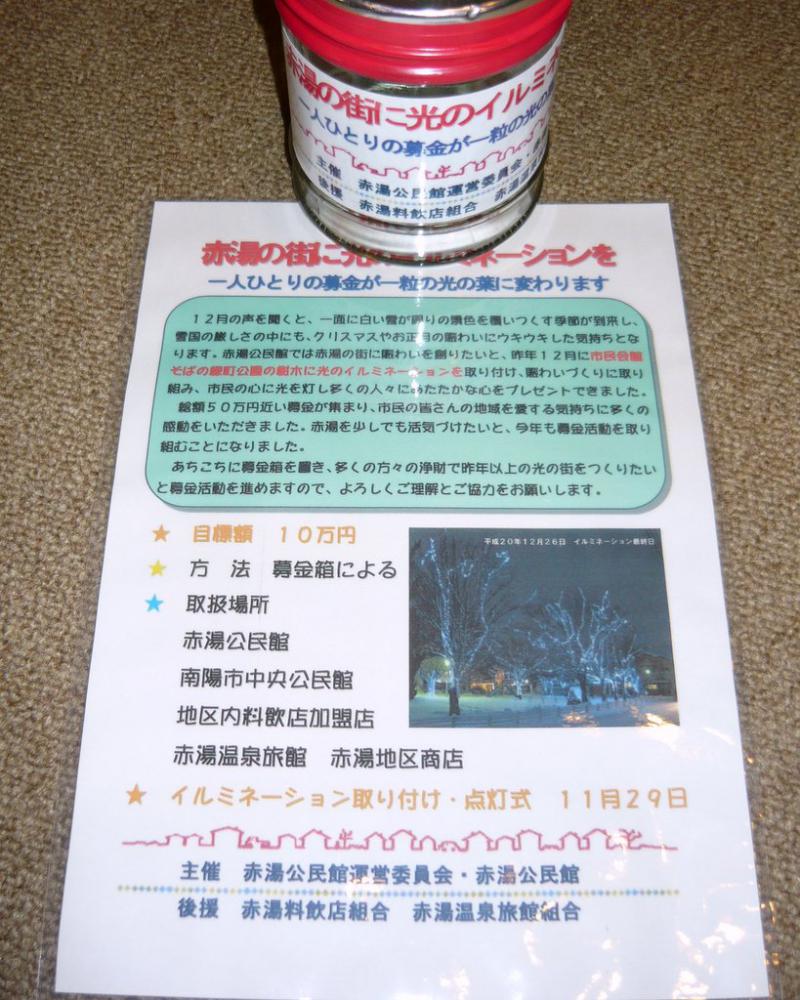 赤湯の街に光のイルミネ
一人ひとりの募金が一粒の光の
主催 赤湯公民館運営委員会・
後援 赤湯料飲店組合 赤湯温
赤湯の街に光 ネーションを
一人ひとりの募金が一粒の光の葉に変わります
１２月の声を聞くと、一面に白い雪が周りの景色を覆いつくす季節が到来し、
雪国の厳しさの中にも、クリスマスやお正月の賑わいにウキウキした気持ちとな
ります。赤湯公民館では赤湯の街に賑わいを創りたいと、昨年１２月に市民会館
そばの緑町公園の樹木に光のイルミネーションを取り付け、賑わいづくりに取り
組み、市民の心に光を灯し多くの人々にあたたかな心をプレゼントできました。
総額５０万円近い募金が集まり、市民の皆さんの地域を愛する気持ちに多くの
感動をいただきました。赤湯を少しでも活気づけたいと、今年も募金活動を取り
組むことになりました。
あちこちに募金箱を置き、多くの方々の浄財で昨年以上の光の街をつくりたい
と募金活動を進めますので、よろしくご理解とご協力をお願いします。
★ 目標額 １０万円
★ 方 法 募金箱による
★ 取扱場所
赤湯公民館
南陽市中央公民館
地区内料飲店加盟店
赤湯温泉旅館 赤湯地区商店
平成20年12月26日 イルミネーション最終日
★ イルミネーション取り付け・点灯式 １１月２９日
主催 赤湯公民館運営委員会・赤湯公民館
後援 赤湯料飲店組合 赤湯温泉旅館組合